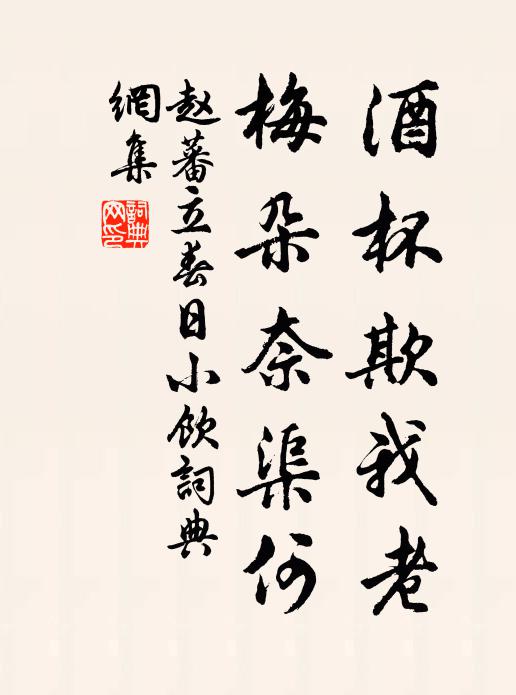 酒杯欺我老
梅朵奈渠何
赵蕃立春日小飲詞典
網集
詞典
网印